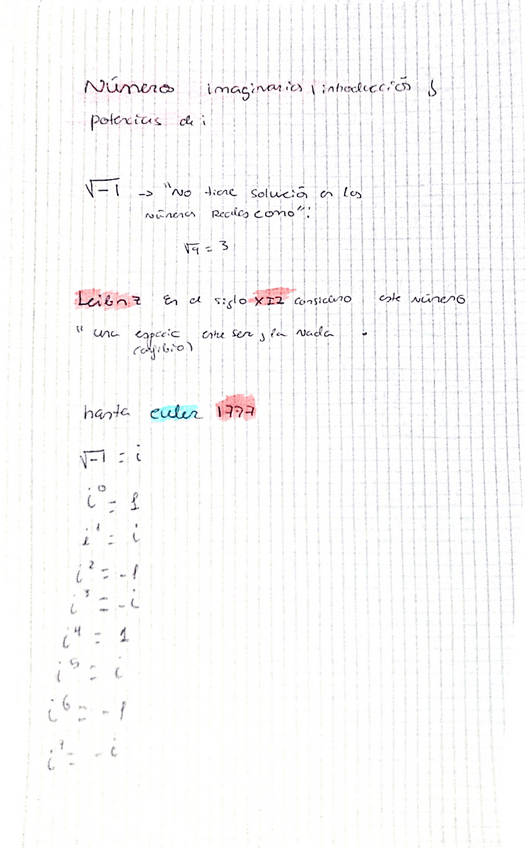 Números imaginarios, introducción y
potencias de i
√-1 -> "No tiene solución en los
números Reales como":
√9 = 3
Leibniz En el siglo XII considero este número
" una especie entre ser y la nada
(anfibio)
hasta euler 1777
√-1 = i
i⁰ = 1
i¹ = i
i² = -1
i³ = -i
i⁴ = 1
i⁵ = i
i⁶ = -1
i⁷ = -i